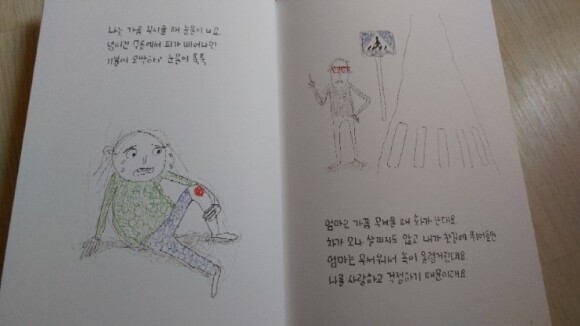 나는 가끔 무서울 때 눈물이 나요.
넘어진 무릎에서 피가 삐져나오면
가슴이 콩닥하고 눈물이 뚝뚝
엄마는 가끔 무서울 때 화가 난대요.
차가 오나 살피지도 않고 내가 찻길에 뛰어들면
엄마는 무서워서 속이 울렁거린대요
나를 사랑하고 걱정하기 때문이래요